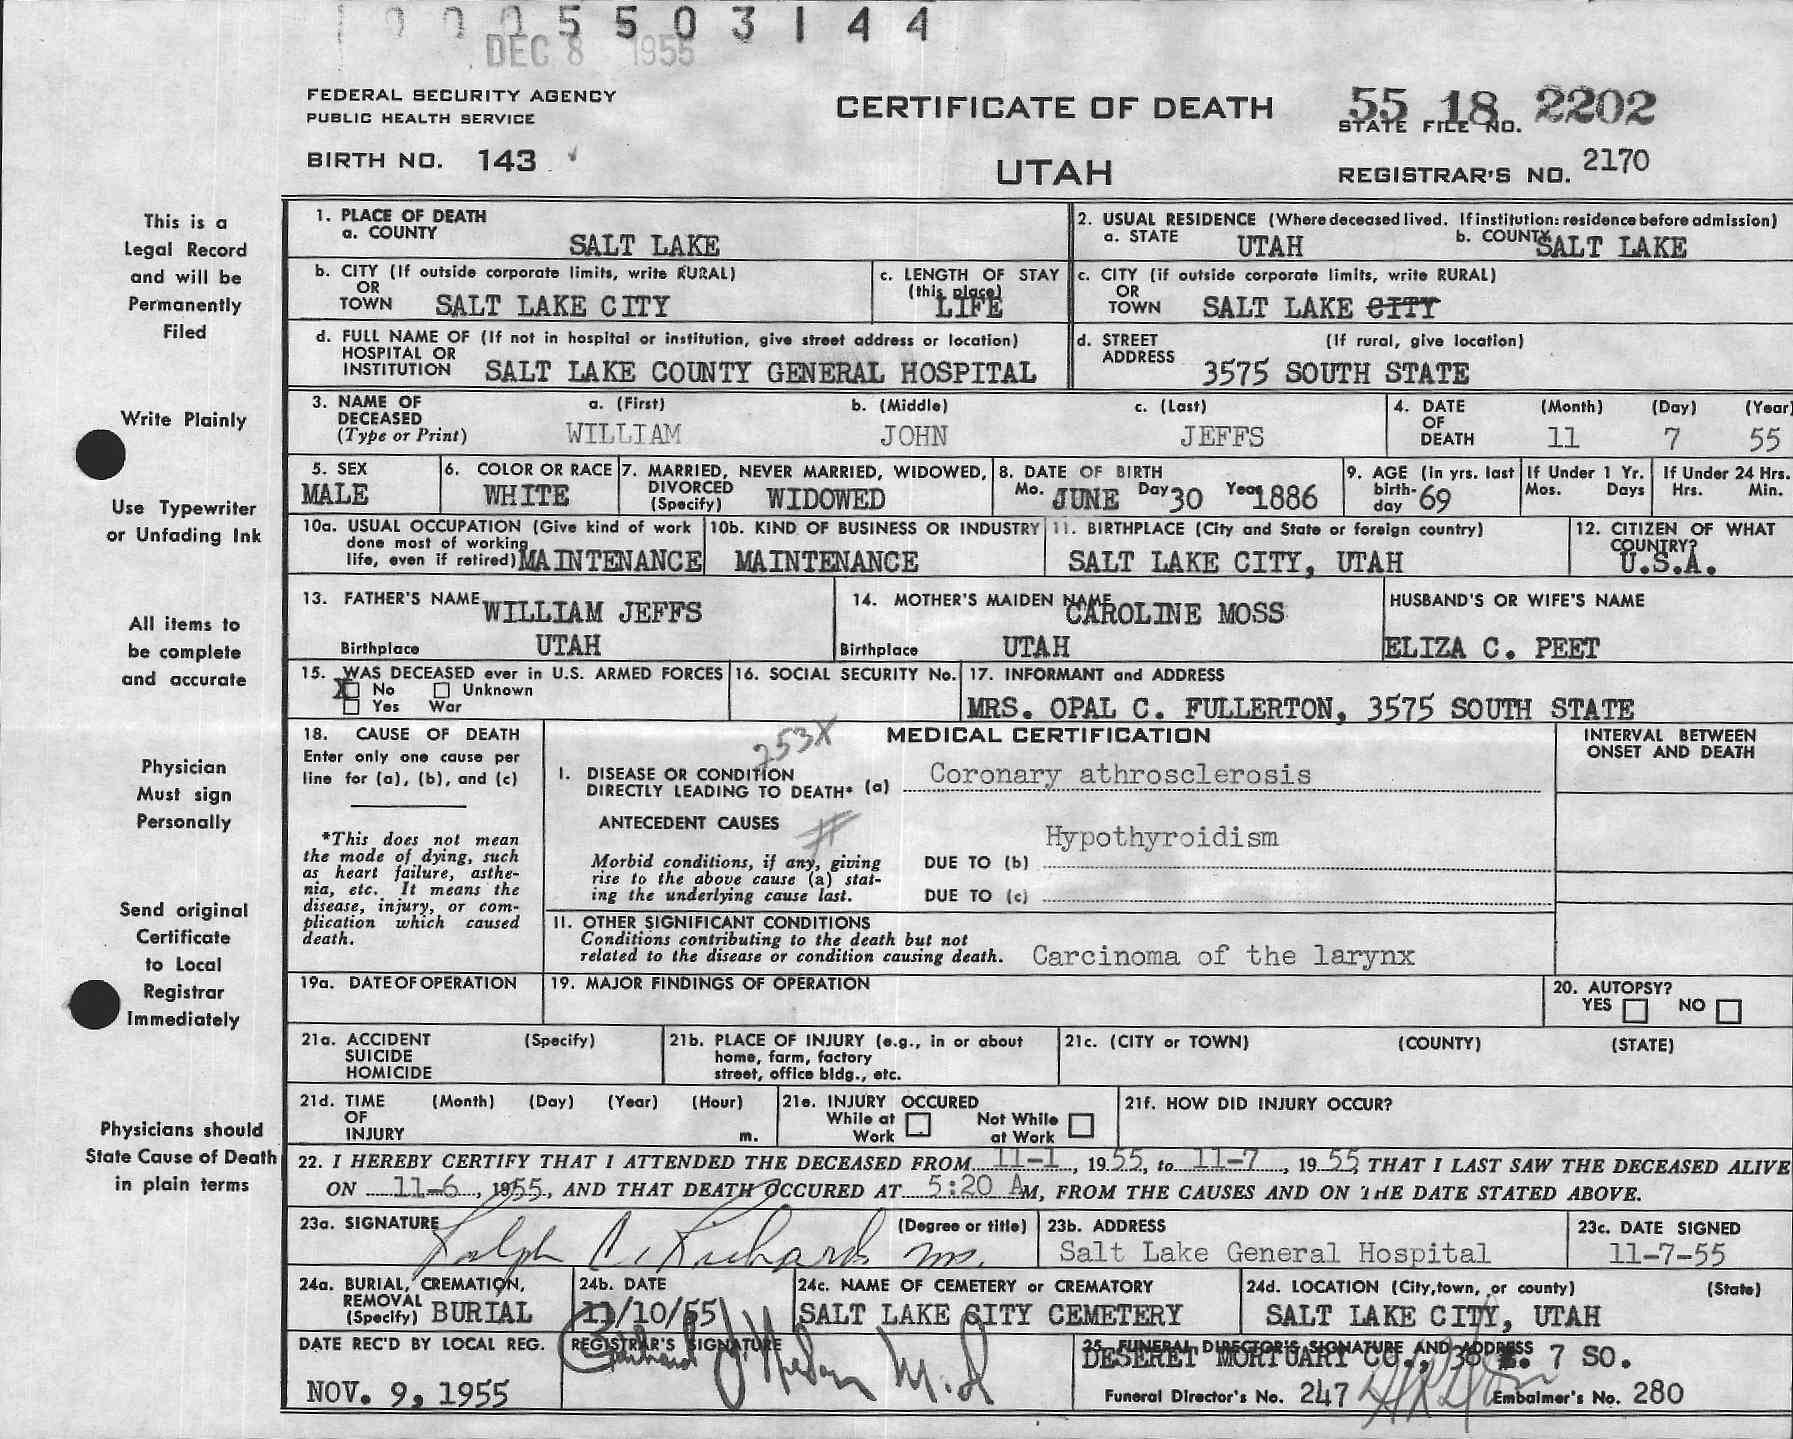 1 0 0 0 5 5 0 3 1 4 4
DEC 8 1955
FEDERAL SECURITY AGENCY
PUBLIC HEALTH SERVICE
BIRTH NO. 143
CERTIFICATE OF DEATH
UTAH
55 18 2202
STATE FILE NO.
REGISTRAR'S NO. 2170
This is a
Legal Record
and will be
Permanently
Filed
Write Plainly
Use Typewriter
or Unfading Ink
All items to
be complete
and accurate
Physician
Must sign
Personally
Send original
Certificate
to Local
Registrar
Immediately
Physicians should
State Cause of Death
in plain terms
1. PLACE OF DEATH
a. COUNTY SALT LAKE
2. USUAL RESIDENCE (Where deceased lived. If institution: residence before admission)
a. STATE UTAH b. COUNTY SALT LAKE
b. CITY (If outside corporate limits, write RURAL)
OR
TOWN SALT LAKE CITY
c. LENGTH OF STAY
(this place)
LIFE
c. CITY (if outside corporate limits, write RURAL)
OR
TOWN SALT LAKE CITY
d. FULL NAME OF (If not in hospital or institution, give street address or location)
HOSPITAL OR
INSTITUTION SALT LAKE COUNTY GENERAL HOSPITAL
d. STREET (If rural, give location)
ADDRESS 3575 SOUTH STATE
3. NAME OF a. (First) b. (Middle) c. (Last)
DECEASED
(Type or Print) WILLIAM JOHN JEFFS
4. DATE (Month) (Day) (Year)
OF
DEATH 11 7 55
5. SEX
MALE
6. COLOR OR RACE
WHITE
7. MARRIED, NEVER MARRIED, WIDOWED,
DIVORCED
(Specify) WIDOWED
8. DATE OF BIRTH
Mo. JUNE Day 30 Year 1886
9. AGE (In yrs. last
birth-
day 69
If Under 1 Yr.
Mos. Days
If Under 24 Hrs.
Hrs. Min.
10a. USUAL OCCUPATION (Give kind of work
done most of working
life, even if retired) MAINTENANCE
10b. KIND OF BUSINESS OR INDUSTRY
MAINTENANCE
11. BIRTHPLACE (City and State or foreign country)
SALT LAKE CITY, UTAH
12. CITIZEN OF WHAT
COUNTRY?
U.S.A.
13. FATHER'S NAME WILLIAM JEFFS
Birthplace UTAH
14. MOTHER'S MAIDEN NAME CAROLINE MOSS
Birthplace UTAH
HUSBAND'S OR WIFE'S NAME
ELIZA C. PEET
15. WAS DECEASED ever in U.S. ARMED FORCES
X No Unknown
Yes War
16. SOCIAL SECURITY No.
17. INFORMANT and ADDRESS
MRS. OPAL C. FULLERTON, 3575 SOUTH STATE
18. CAUSE OF DEATH
Enter only one cause per
line for (a), (b), and (c)
*This does not mean
the mode of dying, such
as heart failure, asthe-
nia, etc. It means the
disease, injury, or com-
plication which caused
death.
253X
MEDICAL CERTIFICATION
I. DISEASE OR CONDITION
DIRECTLY LEADING TO DEATH* (a) Coronary athrosclerosis
ANTECEDENT CAUSES #
Morbid conditions, if any, giving
rise to the above cause (a) stat-
ing the underlying cause last.
DUE TO (b) Hypothyroidism
DUE TO (c)
II. OTHER SIGNIFICANT CONDITIONS
Conditions contributing to the death but not
related to the disease or condition causing death. Carcinoma of the larynx
INTERVAL BETWEEN
ONSET AND DEATH
19a. DATE OF OPERATION
19. MAJOR FINDINGS OF OPERATION
20. AUTOPSY?
YES NO
21a. ACCIDENT (Specify)
SUICIDE
HOMICIDE
21b. PLACE OF INJURY (e.g., in or about
home, farm, factory
street, office bldg., etc.
21c. (CITY or TOWN) (COUNTY) (STATE)
21d. TIME (Month) (Day) (Year) (Hour)
OF
INJURY m.
21e. INJURY OCCURED
While at Work Not While at Work
21f. HOW DID INJURY OCCUR?
22. I HEREBY CERTIFY THAT I ATTENDED THE DECEASED FROM 11-1, 1955, to 11-7, 1955 THAT I LAST SAW THE DECEASED ALIVE
ON 11-6, 1955, AND THAT DEATH OCCURED AT 5:20 AM, FROM THE CAUSES AND ON THE DATE STATED ABOVE.
23a. SIGNATURE (Degree or title)
Ralph C. Richards MD.
23b. ADDRESS
Salt Lake General Hospital
23c. DATE SIGNED
11-7-55
24a. BURIAL, CREMATION,
REMOVAL
(Specify) BURIAL
24b. DATE
11/10/55
24c. NAME OF CEMETERY or CREMATORY
SALT LAKE CITY CEMETERY
24d. LOCATION (City, town, or county) (State)
SALT LAKE CITY, UTAH
DATE REC'D BY LOCAL REG.
NOV. 9, 1955
REGISTRAR'S SIGNATURE
M.D
25. FUNERAL DIRECTOR'S SIGNATURE AND ADDRESS
DESERET MORTUARY CO., 36 E. 7 SO.
Funeral Director's No. 247 Embalmer's No. 280